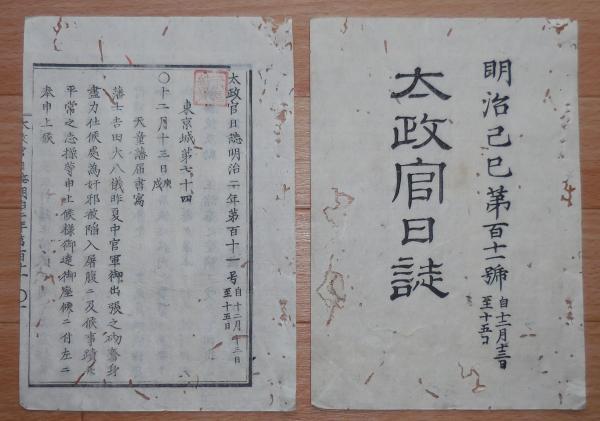 明治己巳第百十一號
自十二月十三日
至十五日
太政官日誌
太政官日誌明治二年第百十一号
自十二月十三日
至十五日
東京城第七十四
〇十二月十三日庚戌
天童藩届書寫
藩士吉田大八儀昨夏中官軍御出張之砌奮身
盡力仕候處為奸邪被陥入屠腹ニ及候事蹟并
平常之志操等申上候様御達御座候ニ付左ニ
奉申上候